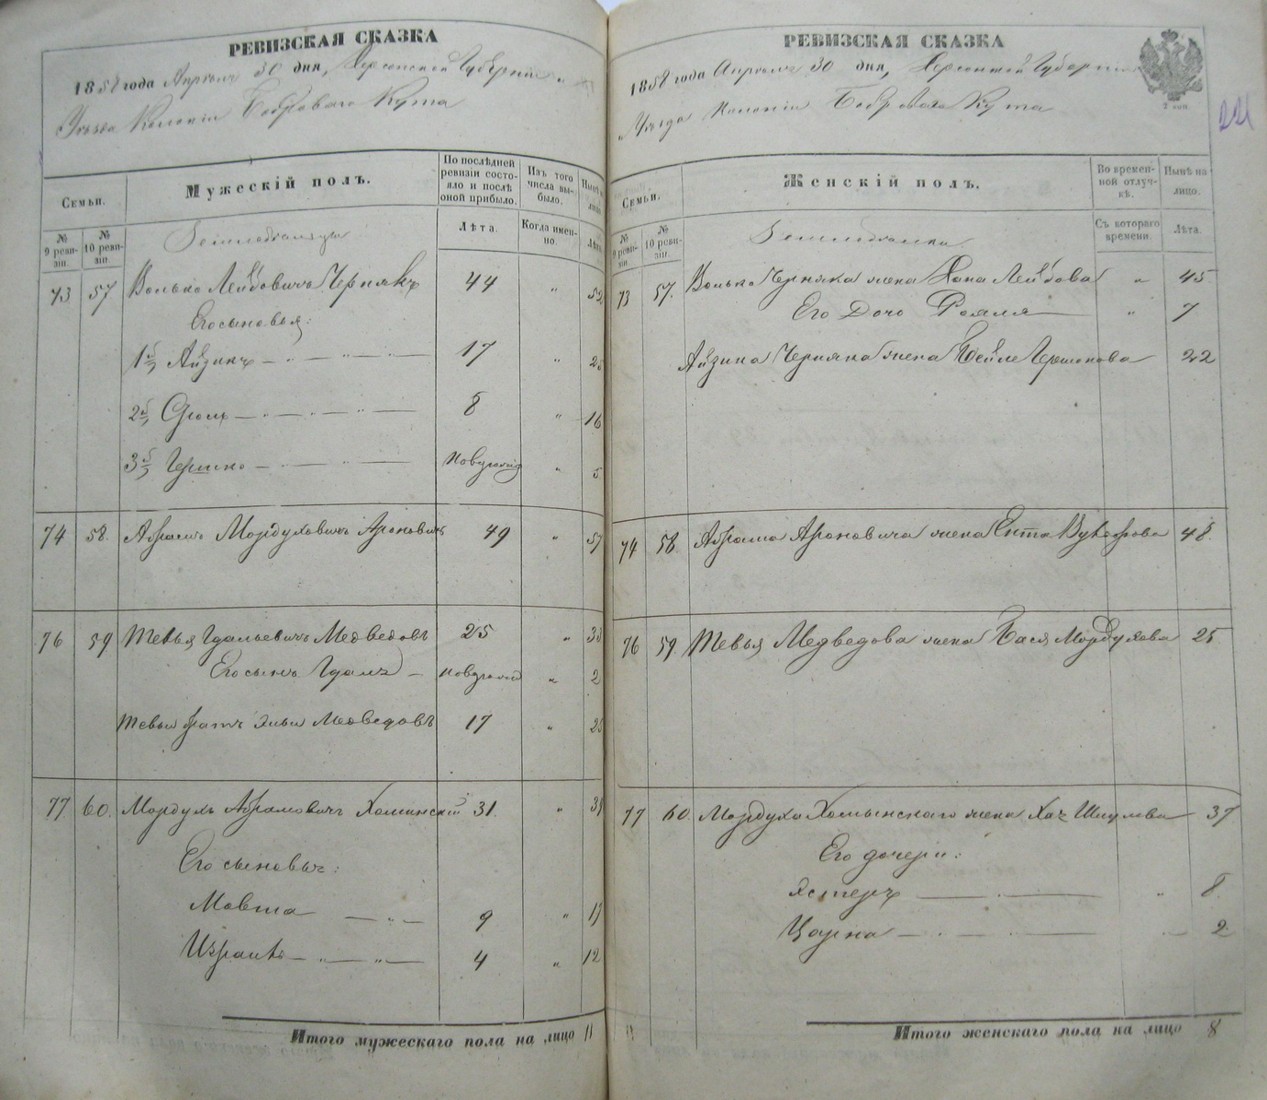 РЕВИЗСКАЯ СКАЗКА
1858 года Апреля 30 дня, Херсонской Губернии и
Уезда Колонии Боброваго Кута
Семьи.
Мужескій полъ.
По послѣдней ревизіи состояло и послѣ оной прибыло.
Изъ того числа выбыло.
Нынѣ на лицо.
№ 9 ревизіи.
№ 10 ревизіи.
Лѣта.
Когда именно.
Лѣта.
Земледельцы
73 57 Волько Лейбовичъ Чернякъ 44 " 52
Его сыновья:
1й Айзикъ 17 " 25
2й Сроль 8 " 16
3й Гершко новурожд " 5
74 58. Абрамъ Мордуховичъ Ароновичъ 49 " 57
76 59 Тевья Гдальевичъ Медведовъ 25 " 33
Его сынъ Гдаль новурожд " 2
Тевьи братъ Эльи Медведовъ 17 " 25
77 60. Мордухъ Абрамовичъ Хоминскій 31. " 39
Его сыновья:
Мовша 9 " 17
Израиль 4 " 12
Итого мужескаго пола на лицо 11
РЕВИЗСКАЯ СКАЗКА
1858 года Апреля 30 дня, Херсонской Губерніи
и Уезда Колоніи Бобровага Кута
2 коп.
221
Семьи.
Женскій полъ.
Во временной отлучкѣ.
Нынѣ на лицо.
№ 9 ревизіи
№ 10 ревизіи.
Съ котораго времени.
Лѣта.
Земледелки
73 57. Волько Черняка жена Хана Лейбова " 45
Его Дочь Рояля " 7
Айзика Черняка жена Бейле Гершкова 22
74 58 Абрама Ароновича жена Ента 48.
76 59. Тевья Медведова жена Бася Мордухова 25
77 60. Мордуха Хомынскаго жена Хая Шмулева 37
Его дочери:
Ястеръ " 8.
Царна " 2
Итого женскаго пола на лицо 8